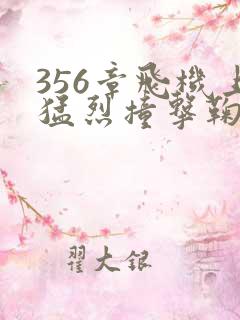 356章飛機上
猛烈撞擊鞠
翟大銀